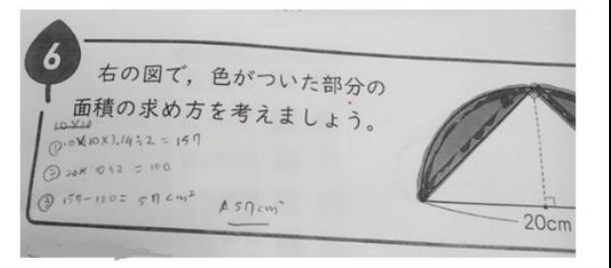 6
右の図で，色がついた部分の
面積の求め方を考えましょう。
10×10
①10×10×3.14÷2=157
②20×10÷2=100
③157-100=57cm²
A57cm²
20cm